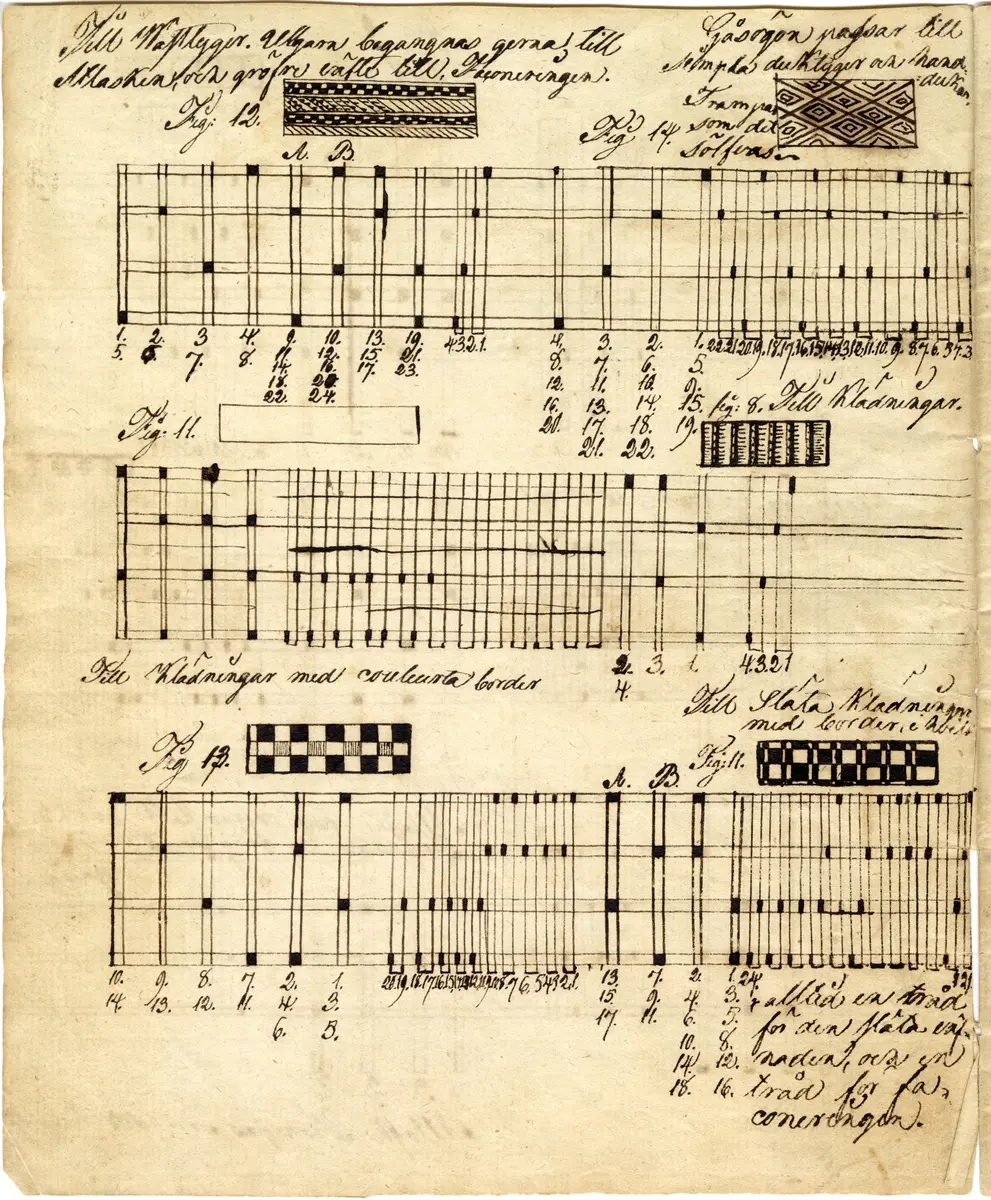 Till Wästtyger. Ullgarn begagnas gerna till
Atlasken, och gröfre effte till, Faconeringen.
Fig: 12.
Gåsögon passar till
ducktyger och hand-
dukar.
Trampas
som det
sölfvas
Fig 14.
A. B.
1. 2. 3 4. 9. 10. 13. 19. 4.3.2.1. 4. 3. 2. 1. 22.21.20.19.18.17.16.15.14.13.12.11.10.9.8.7.6.5.4.3
5. 6 7. 8. 11. 12. 15. 21. 8 7. 6. 5.
14. 16. 17. 23. 12. 11. 10. 9.
18. 20. 16. 13. 14. 15.
22. 24. 20. 17. 18. 19.
21. 22.
Fig: 11.
fig: 8. Till Klädningar.
2. 3. 1. 4.3.2.1
4.
Till Klädningar med couleurta border
Till Släta Klädningar
med border, i
Fig 13.
Fig: 11.
A. B.
10. 9. 8. 7. 2. 1. 20.19.18.17.16.15.14.13.12.11.10.9.8.7.6.5.4.3.2.1. 13. 7. 2. 1. 24. 1
14. 13. 12. 11. 4. 3. 15. 9. 4. 3.
6. 5. 17. 11. 6. 5.
10. 8.
14. 12.
18. 16.
alltid en tråd
för den släta
naden, och en
tråd för fa-
coneringen.